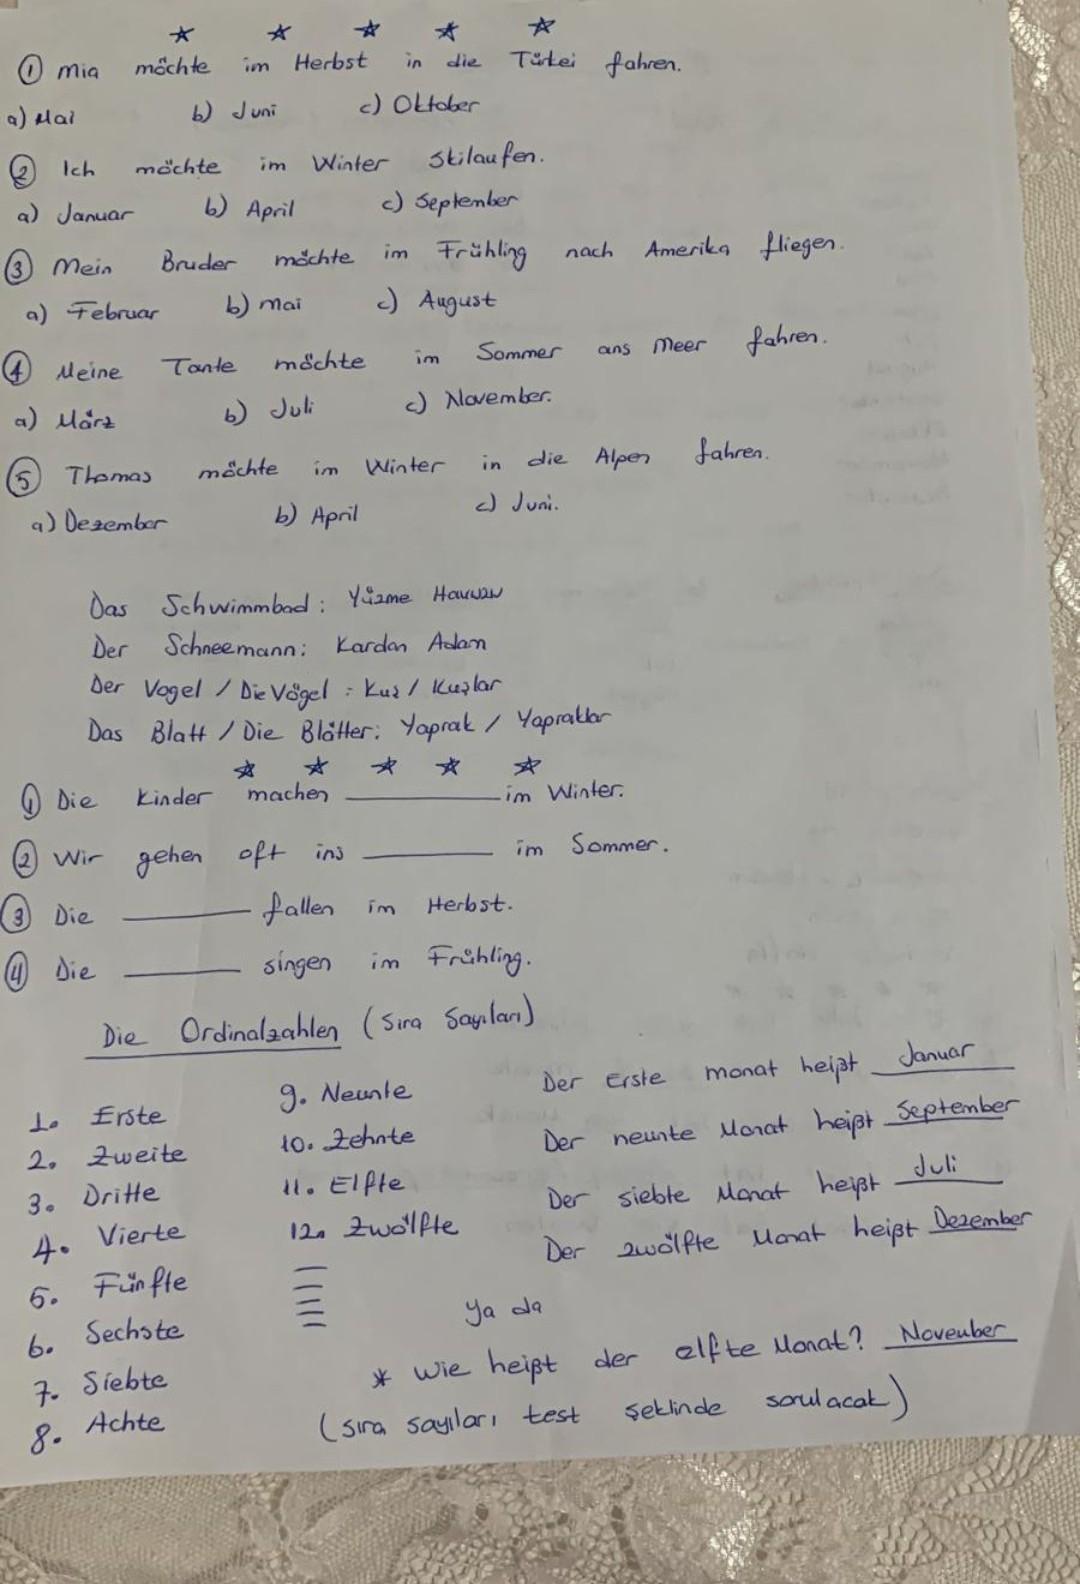 ① Mia möchte im Herbst in die Türkei fahren.
a) Mai b) Juni c) Oktober
② Ich möchte im Winter Skilaufen.
a) Januar b) April c) September
③ Mein Bruder möchte im Frühling nach Amerika fliegen.
a) Februar b) mai c) August
④ Meine Tante möchte im Sommer ans Meer fahren.
a) März b) Juli c) November.
⑤ Thomas möchte im Winter in die Alpen fahren.
a) Dezember b) April c) Juni.
Das Schwimmbad: Yüzme
Der Schneemann: Kardan Adam
Der Vogel / Die Vögel: Kuş / Kuşlar
Das Blatt / Die Blätter: Yaprak / Yapraklar
① Die Kinder machen ________ im Winter.
② Wir gehen oft ins ________ im Sommer.
③ Die ________ fallen im Herbst.
④ Die ________ singen im Frühling.
Die Ordinalzahlen (Sıra Sayıları)
1. Erste
2. Zweite
3. Dritte
4. Vierte
5. Fünfte
6. Sechste
7. Siebte
8. Achte
9. Neunte
10. Zehnte
11. Elfte
12. Zwölfte
Der Erste monat heißt Januar
Der neunte Monat heißt September
Der siebte Monat heißt Juli
Der zwölfte Monat heißt Dezember
ya da
* Wie heißt der elfte Monat? November
(sıra sayıları test şeklinde sorulacak)